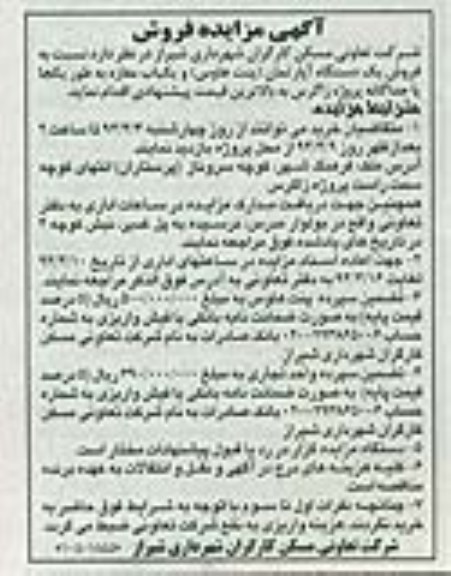 آگهی مزایده فروش
شرکت تعاونی مسکن کارگران شهرداری شیراز در نظر دارد نسبت به
فروش یک دستگاه آپارتمان (پنت هاوس) و یکباب مغازه به طور یکجا
یا جداگانه پروژه زاگرس به بالاترین قیمت پیشنهادی اقدام نماید.
شرایط مزایده:
۱- متقاضیان خرید می توانند از روز چهارشنبه ۹۳/۳/۳ تا ساعت ۲
بعدازظهر روز ۹۳/۳/۹ از محل پروژه بازدید نمایند.
آدرس ملک: فرهنگ شهر، کوچه سروناز (پرستاران) انتهای کوچه
سمت راست پروژه زاگرس
همچنین جهت دریافت مدارک مزایده در ساعات اداری به دفتر
تعاونی واقع در بولوار مدرس، نرسیده به پل غدیر، نبش کوچه ۲
در تاریخ های یادشده فوق مراجعه نمایند.
۲- جهت اعاده اسناد مزایده در ساعتهای اداری از تاریخ ۹۳/۳/۱۰
لغایت ۹۳/۳/۱۶ به دفتر تعاونی به آدرس فوق الذکر مراجعه نمایند.
۳- تضمین سپرده پنت هاوس به مبلغ ۵۰۰/۰۰۰/۰۰۰ ریال (۵ درصد
قیمت پایه) به صورت ضمانت نامه بانکی یا فیش واریزی به شماره
حساب بانک صادرات به نام شرکت تعاونی مسکن
کارگران شهرداری شیراز
۴- تضمین سپرده واحد تجاری به مبلغ ریال (۵ درصد
قیمت پایه) به صورت ضمانت نامه بانکی یا فیش واریزی به شماره
حساب بانک صادرات به نام شرکت تعاونی مسکن
کارگران شهرداری شیراز
۵- دستگاه مزایده گزار در رد یا قبول پیشنهادات مختار است.
۶- کلیه هزینه های درج در آگهی و نقل و انتقالات به عهده برنده
مناقصه است.
۷- چنانچه نفرات اول تا سوم با توجه به شرایط فوق حاضر به
خرید نگردند، هزینه واریزی به نفع شرکت تعاونی ضبط می گردد.
شرکت تعاونی مسکن کارگران شهرداری شیراز